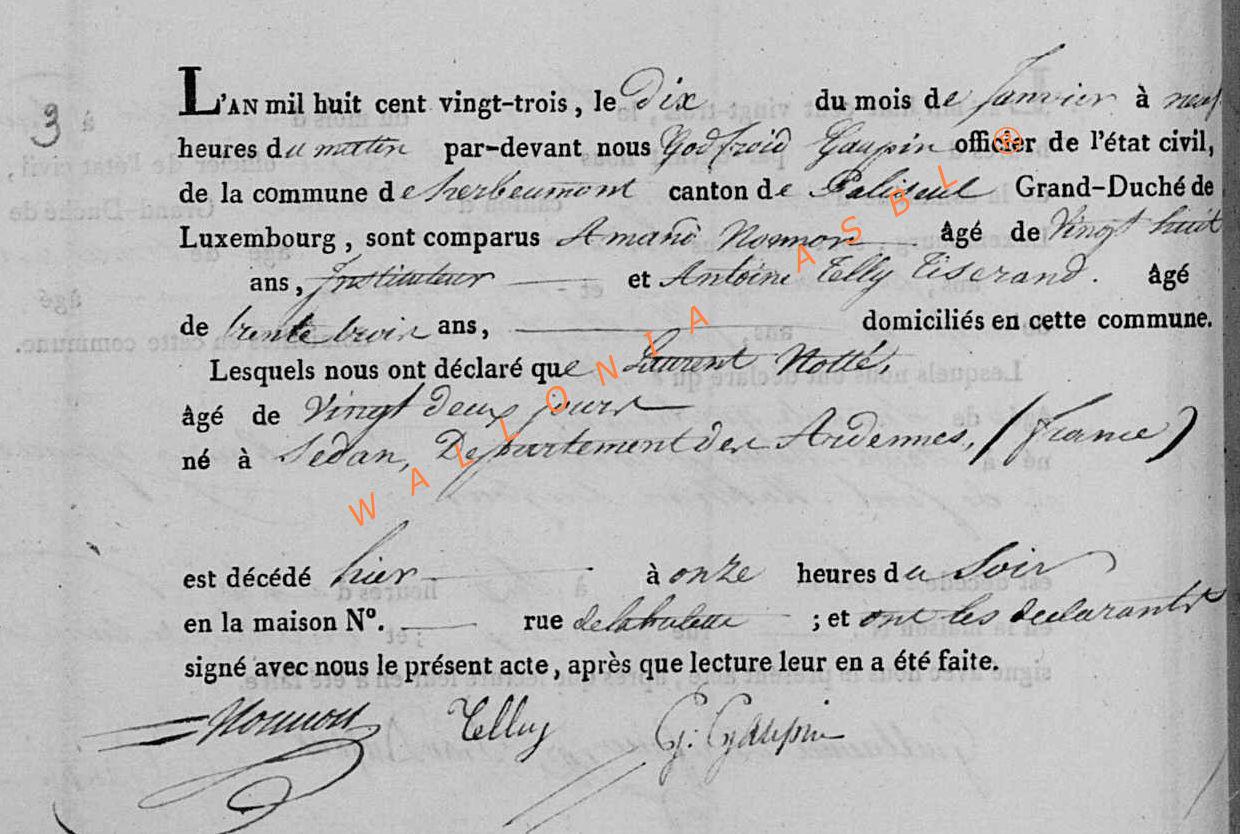 3
L'AN mil huit cent vingt-trois, le Dix du mois de Janvier à neuf
heures du matin par-devant nous Godfroid Gaupin officier de l'état civil,
de la commune de herbeumont canton de Paliseul Grand-Duché de
Luxembourg, sont comparus Amand Nonnon âgé de Vingt huit
ans, Instituteur et Antoine Telly Tiserand. âgé
de trente trois ans, domiciliés en cette commune.
Lesquels nous ont déclaré que Laurent Nollé,
âgé de Vingt deux jours
né à Sedan, Departement des Ardennes, (france)
est décédé hier à onze heures du Soir
en la maison N°. rue ; et ont les declarants
signé avec nous le présent acte, après que lecture leur en a été faite.
Nonnon Telly G: Gaupin
WALLONIA ASBL